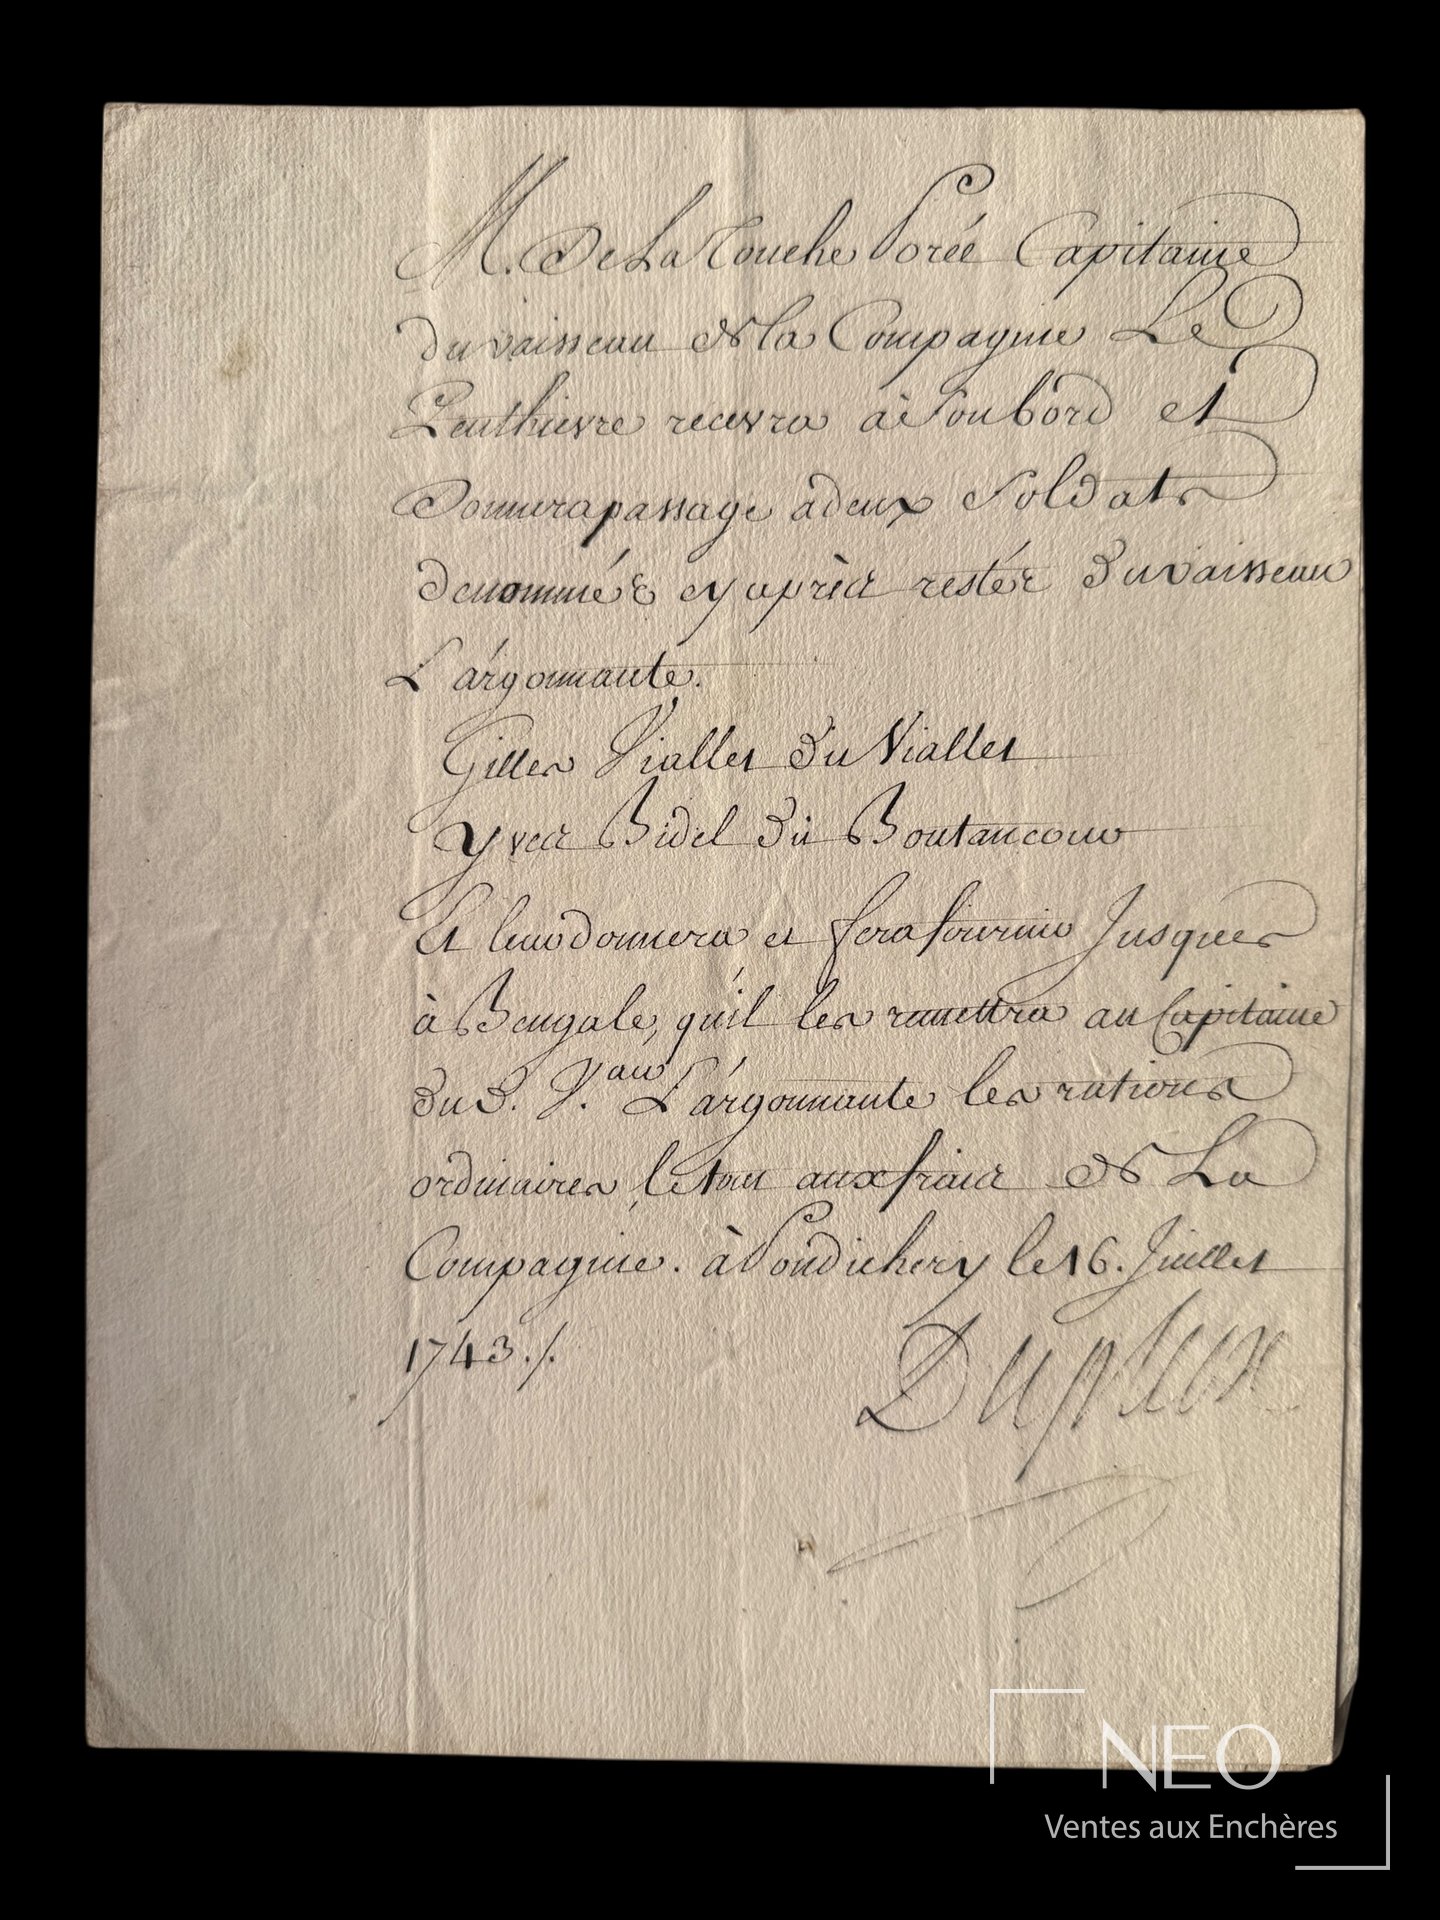 M. De La Touche Porée Capitaine
du vaisseau de la Compagnie Le
Penthievre recevra à Son bord et
Donnera passage à deux Soldats
denommés cy après restés du vaisseau
L'argonnaute.
Gilles Viallet du Viallet
Yves Bidel du Boutancour
Et leur donnera et fera fournir Jusques
à Bengale, qu'il les remettra au Capitaine
du d. V.au L'argonnaute les rations
ordinaires, le tout aux frais de La
Compagnie. à Pondichery le 16. Juillet
1743./.
Dupleix
NEO
Ventes aux Enchères